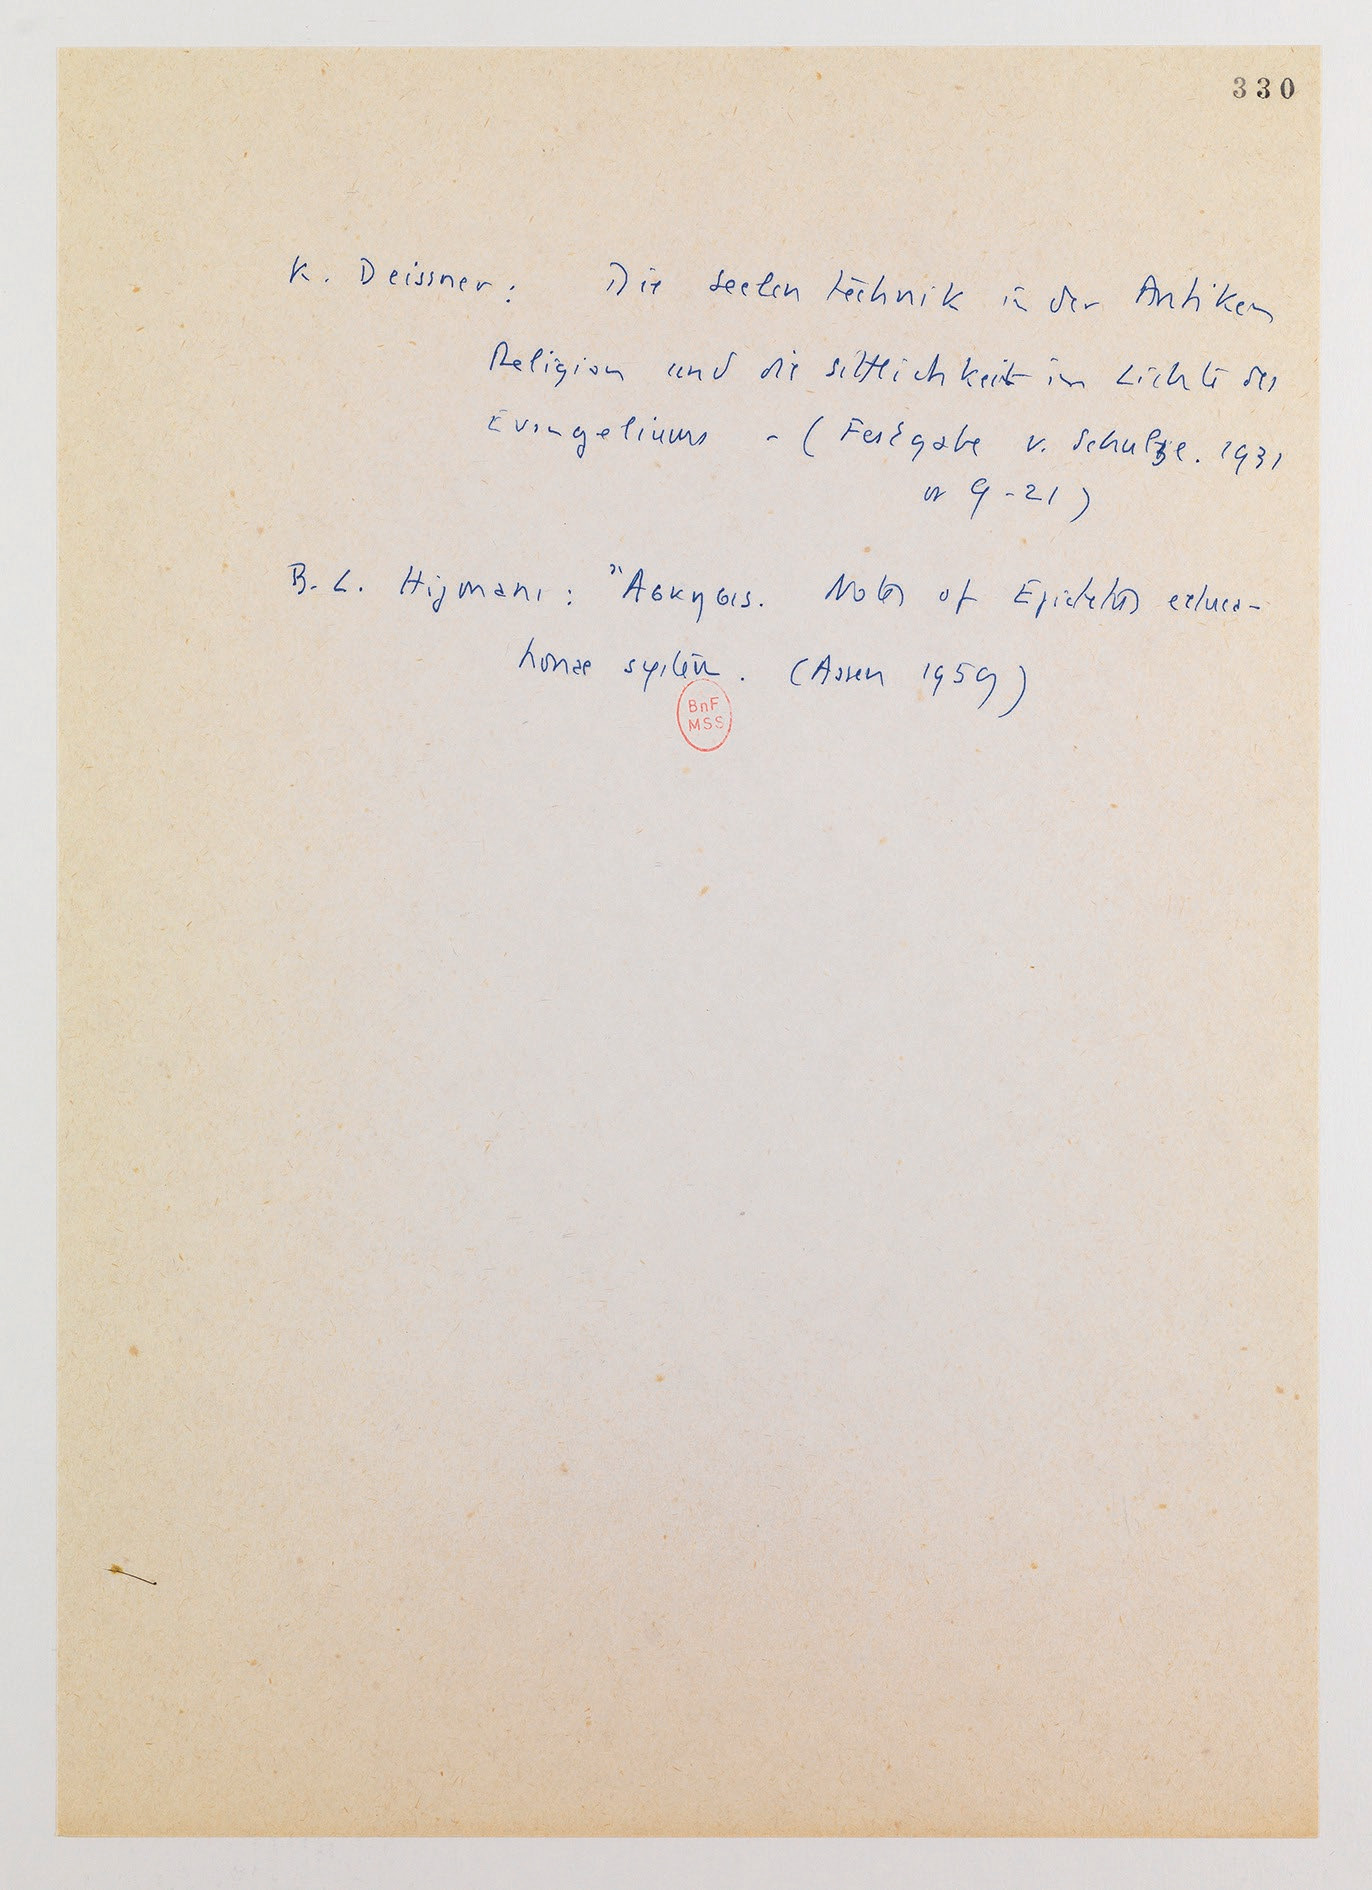 330
K. Deissner : Die Seelen technik in der Antiken
Religion und die sittlichkeit im Lichte des
Evangeliums - ( Festgabe v. Schulze. 1931
9-21 )
B. L. Hijmans : "Ασκησις. Notes of Epictetus educa-
tional system. (Assen 1959)
BnF
MSS